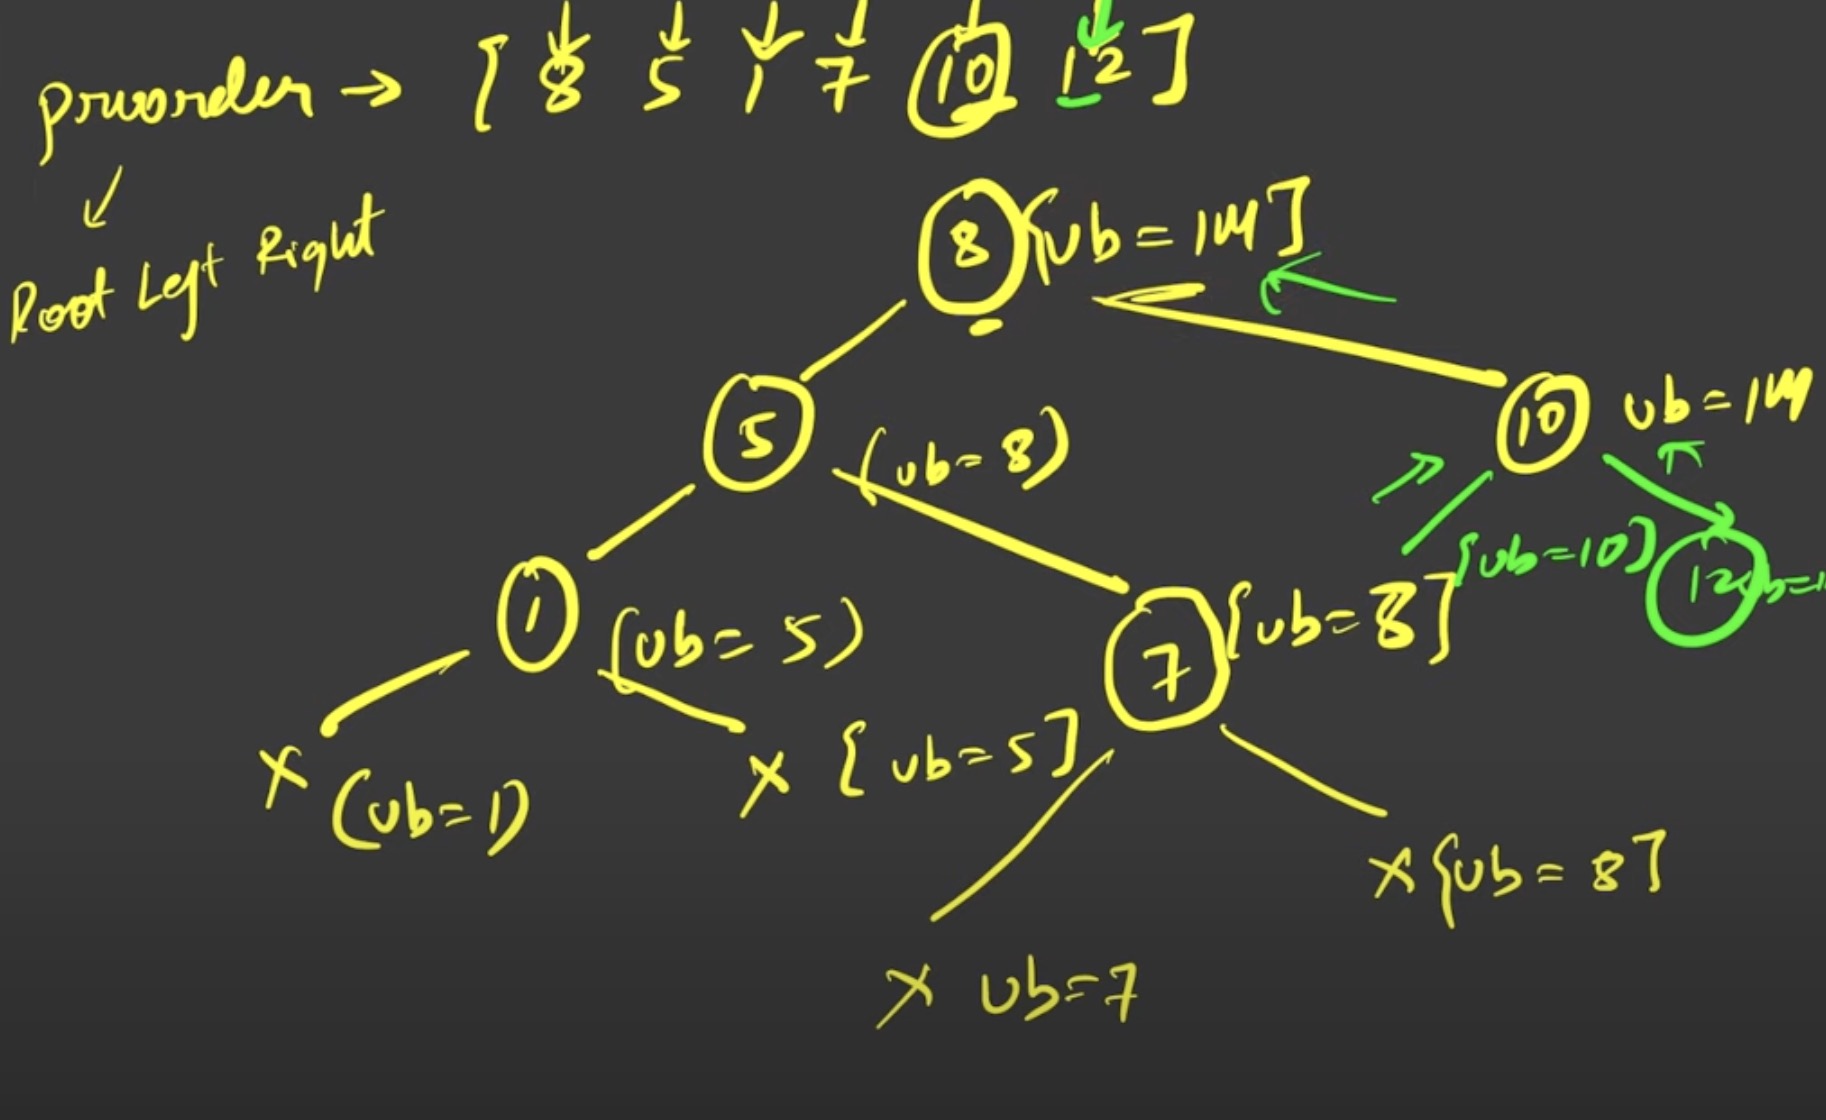 preorder → [ 8 5 1 7 10 12 ]
Root Left Right
8 [ub = IM]
5 (ub = 8)
10 ub = IM
1 (ub = 5)
7 [ub = 8]
[ub=10]
12
x (ub=1)
x [ub=5]
x [ub = 8]
x ub=7